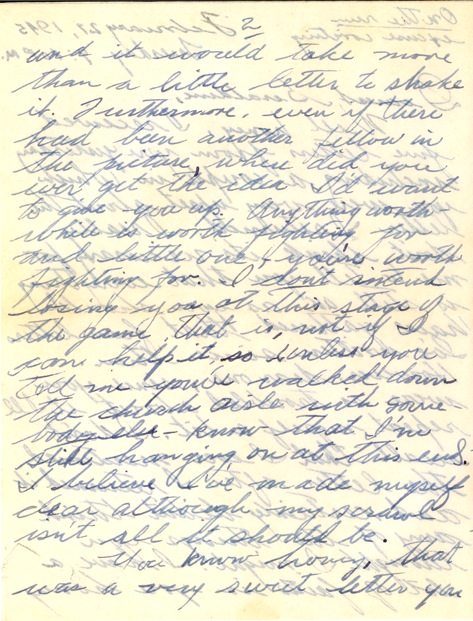 2
and it would take more
than a little letter to shake
it. Furthermore, even if there
had been another fellow in
the picture, where did you
ever get the idea I'd want
to give you up. Anything worth-
while is worth fighting for
and little one, you're worth
fighting for. I don't intend
losing you at this stage of
the game, that is, not if I
can help it, so unless you
told me you've walked down
the church aisle with some-
body else - know that I'm
still hanging on at this end.
I believe I've made myself
clear although my scrawl
isn't all it should be.
You know honey, that
was a very sweet letter you